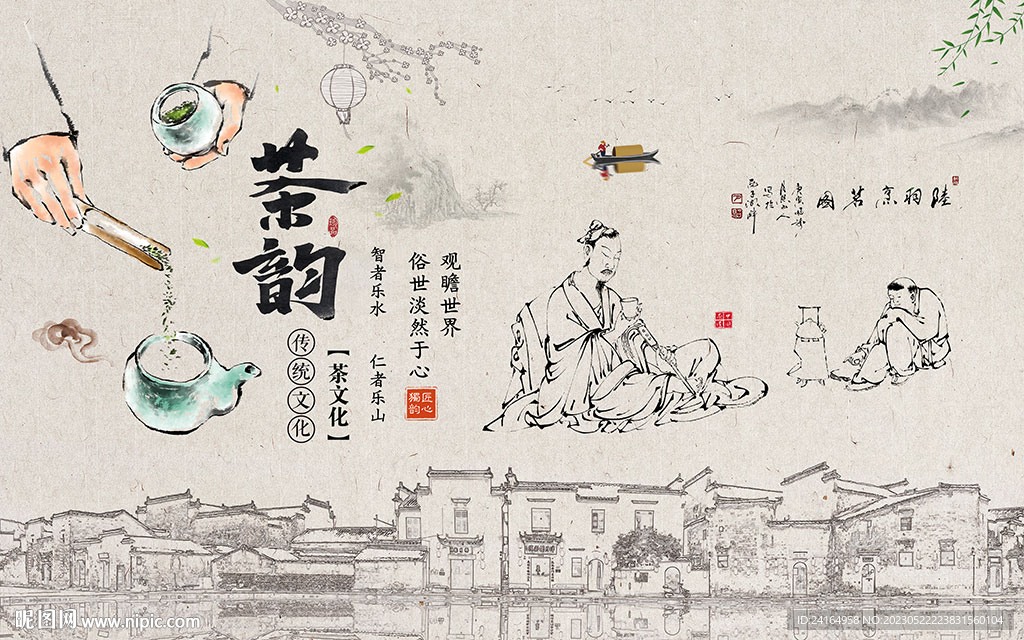 茶韵
传统文化
【茶文化】
智者乐水 仁者乐山
观瞻世界
俗世淡然于心
匠心
獨韵
陸羽烹茗圖
昵图网 www.nipic.com
ID:24164958 NO:20230522223831560104